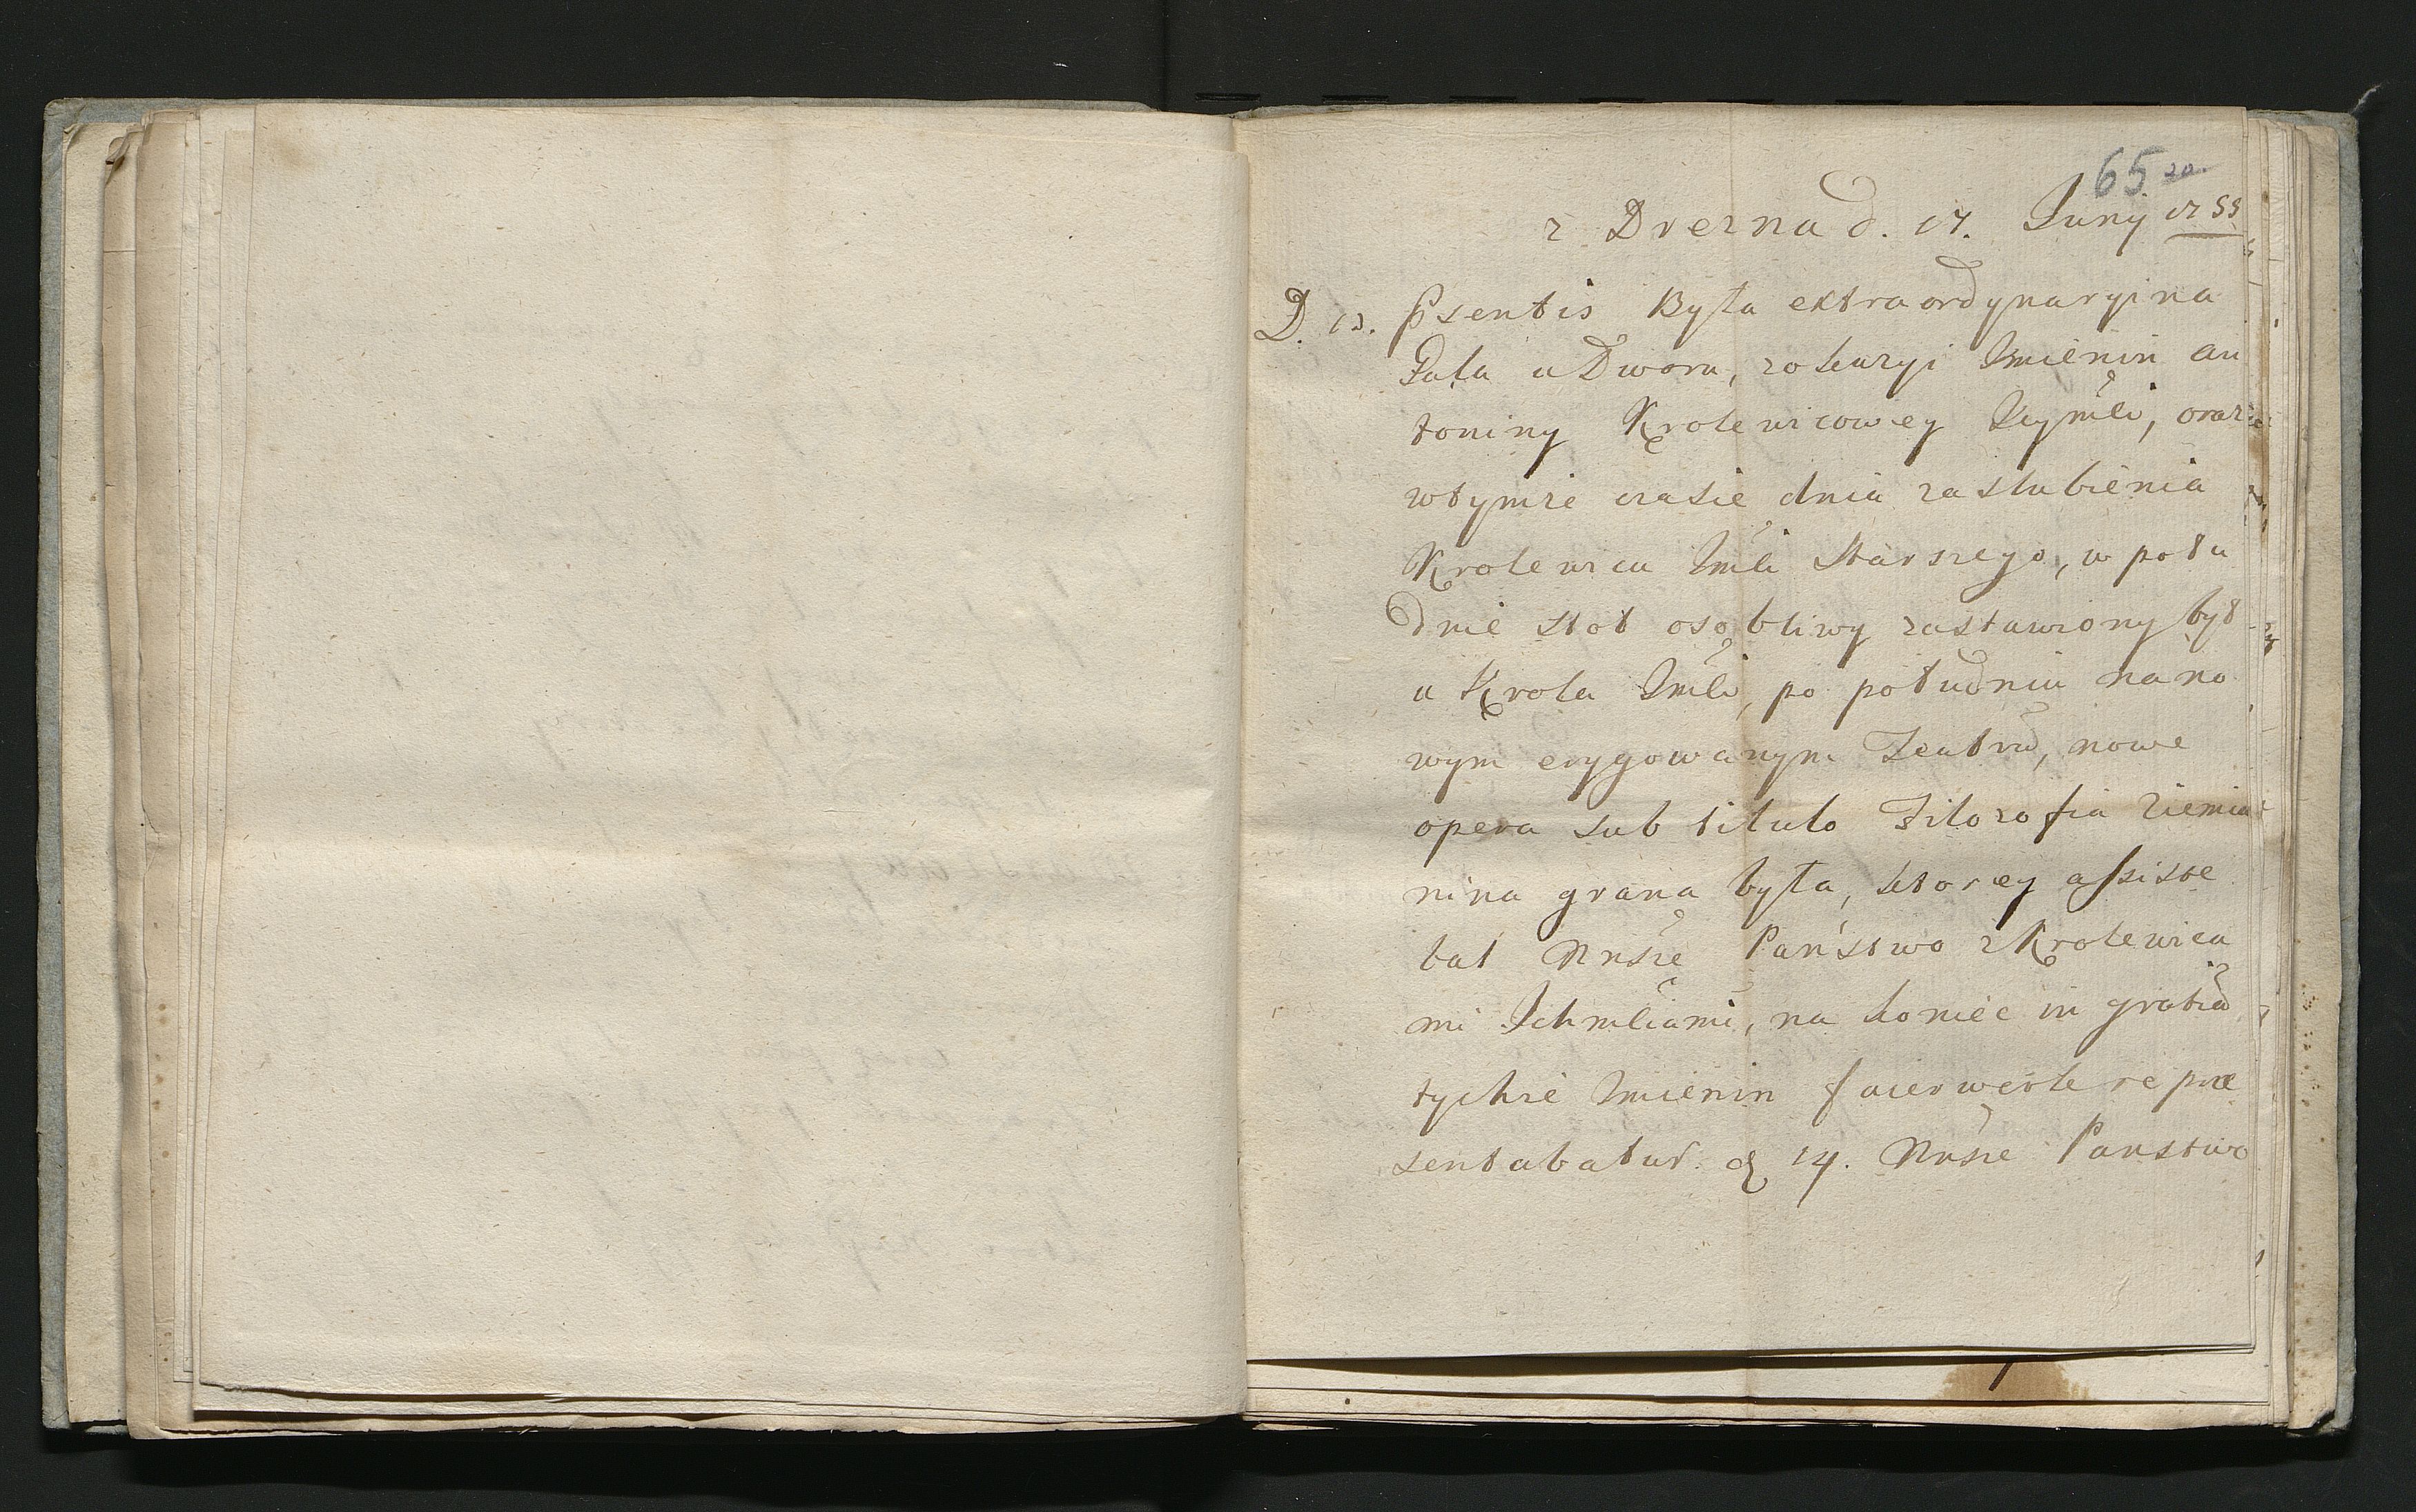 65 20
z Drezna d. 17. Junij 1755
D. 13. Psentis Była extraordynaryina
Gala u Dworu, z okazyi Imienin An
toniny Krolewicowey Jeymći, oraz
w tymże czasie dnia zaslubienia
Krolewica Imći Starszego, w połu
dnie stoł osobliwy zastawiony był
u Krola Imći, po południu na no
wym erygowanym Teatrū, nowe
opera sub titulo Filozofia Ziemia
nina grana była, ktorey assiste
bat Nrsze Państwo z Krolewica
mi Ichmćiami, na koniec in gratiā
tychże Imienin faierwerk repræ
sentabatur. d 14. Nrsze Panstwo